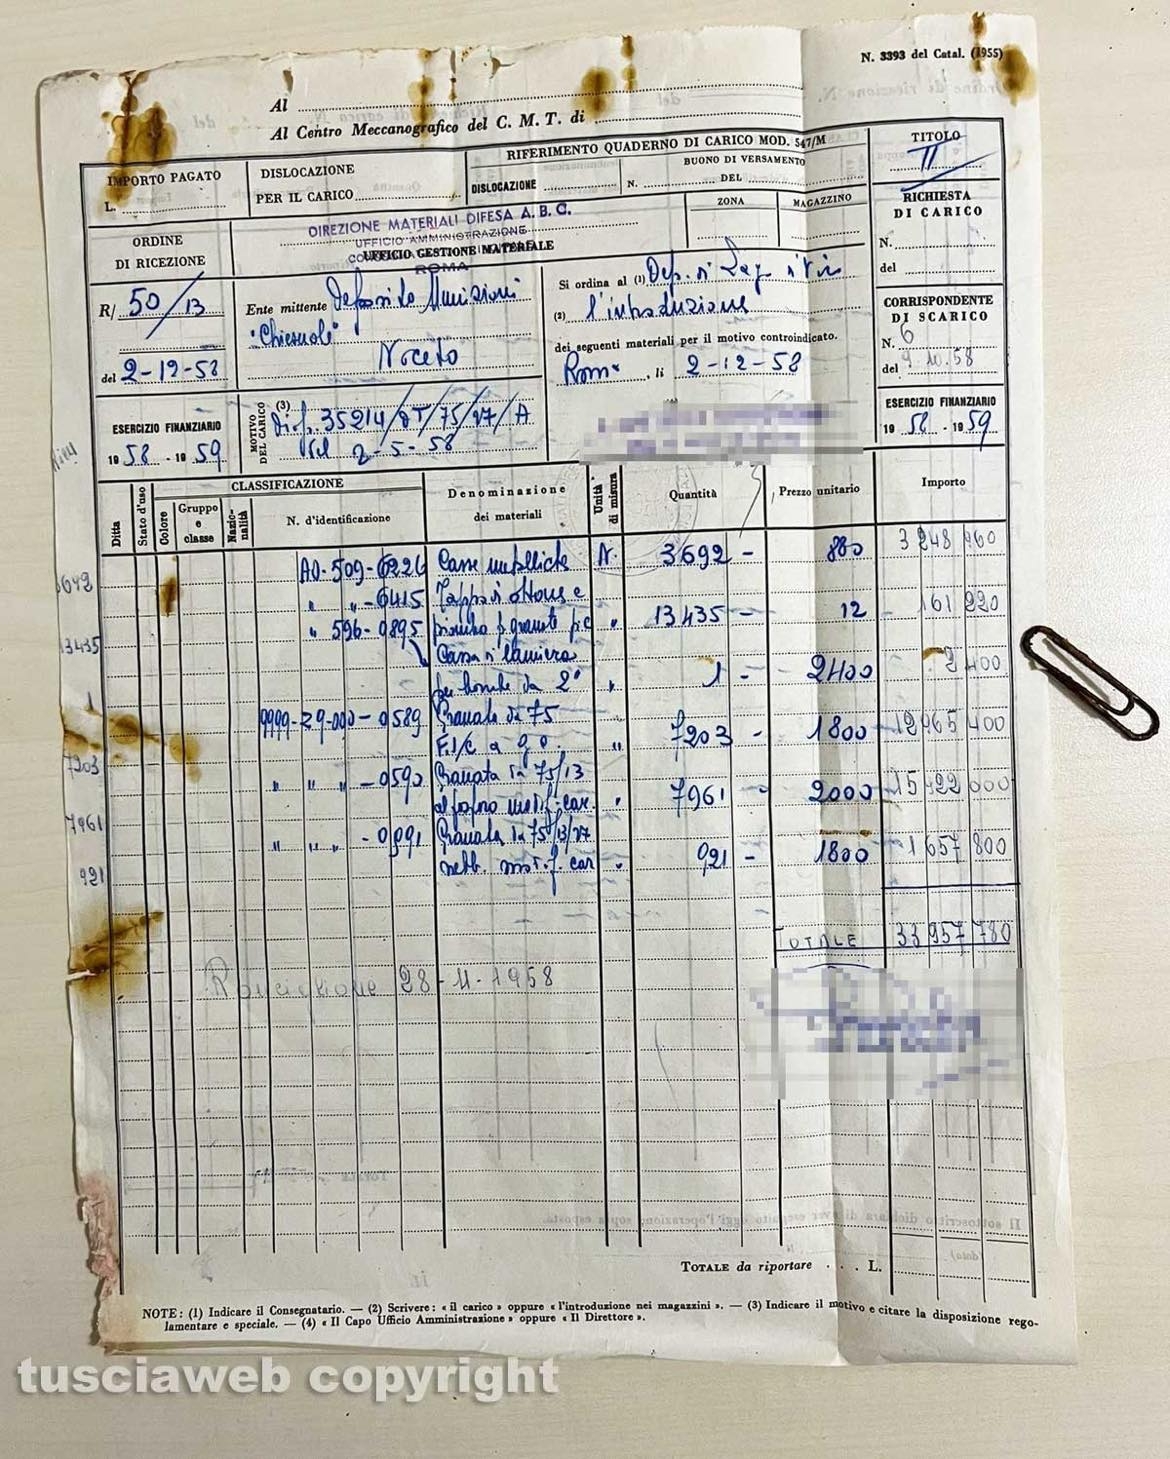 N. 3393 del Catal. (1955)
Al
Al Centro Meccanografico del C. M. T. di
IMPORTO PAGATO
L.
DISLOCAZIONE
PER IL CARICO
RIFERIMENTO QUADERNO DI CARICO MOD. 547/M
DISLOCAZIONE
BUONO DI VERSAMENTO
N. DEL
ZONA
MAGAZZINO
TITOLO
II
RICHIESTA
DI CARICO
N.
del
ORDINE
DI RICEZIONE
R/ 50/13
del 2-12-58
DIREZIONE MATERIALI DIFESA A. B. C.
UFFICIO AMMINISTRAZIONE
UFFICIO GESTIONE MATERIALE
ROMA
Ente mittente Deposito Munizioni
"Chiesuole"
Noceto
Si ordina al (1)
(2) l'introduzione
dei seguenti materiali per il motivo controindicato.
Roma, li 2-12-58
CORRISPONDENTE
DI SCARICO
N. 6
del 9.10.58
ESERCIZIO FINANZIARIO
19 58 - 19 59
MOTIVO
DEL CARICO
(3) Disp. 35214/ST/75/27/A
del 2-5-58
ESERCIZIO FINANZIARIO
19 58 - 19 59
Ditta
Stato d'uso
CLASSIFICAZIONE
Colore
Gruppo
e
classe
Nazio-
nalità
N. d'identificazione
Denominazione
dei materiali
Unità
di misura
Quantità
Prezzo unitario
Importo
A0-509-6226 Casse metalliche N. 3692 - 880 3 248 960
" " -6415 Tappi ottone e
13435 " 596-0895 piombo p. granate pic " 13435 - 12 161 220
Cassa lamiera
1 per bombe da 2" " 1 - 2400 2 400
9999-29-000-0589 Granate da 75
7203 F.1/C a g.p. " 7203 - 1800 12 965 400
" " " -0590 Granata da 75/13
7961 al fosforo modif. car. " 7961 - 2000 15 922 000
" " " -0591 Granata da 75/13/27
921 nebb. modif car " 921 - 1800 1 657 800
TOTALE 33 957 780
Ronciglione 28-11-1958
TOTALE da riportare . . . L.
NOTE: (1) Indicare il Consegnatario. — (2) Scrivere: « il carico » oppure « l'introduzione nei magazzini ». — (3) Indicare il motivo e citare la disposizione rego-
lamentare e speciale. — (4) « Il Capo Ufficio Amministrazione » oppure « Il Direttore ».
tusciaweb copyright